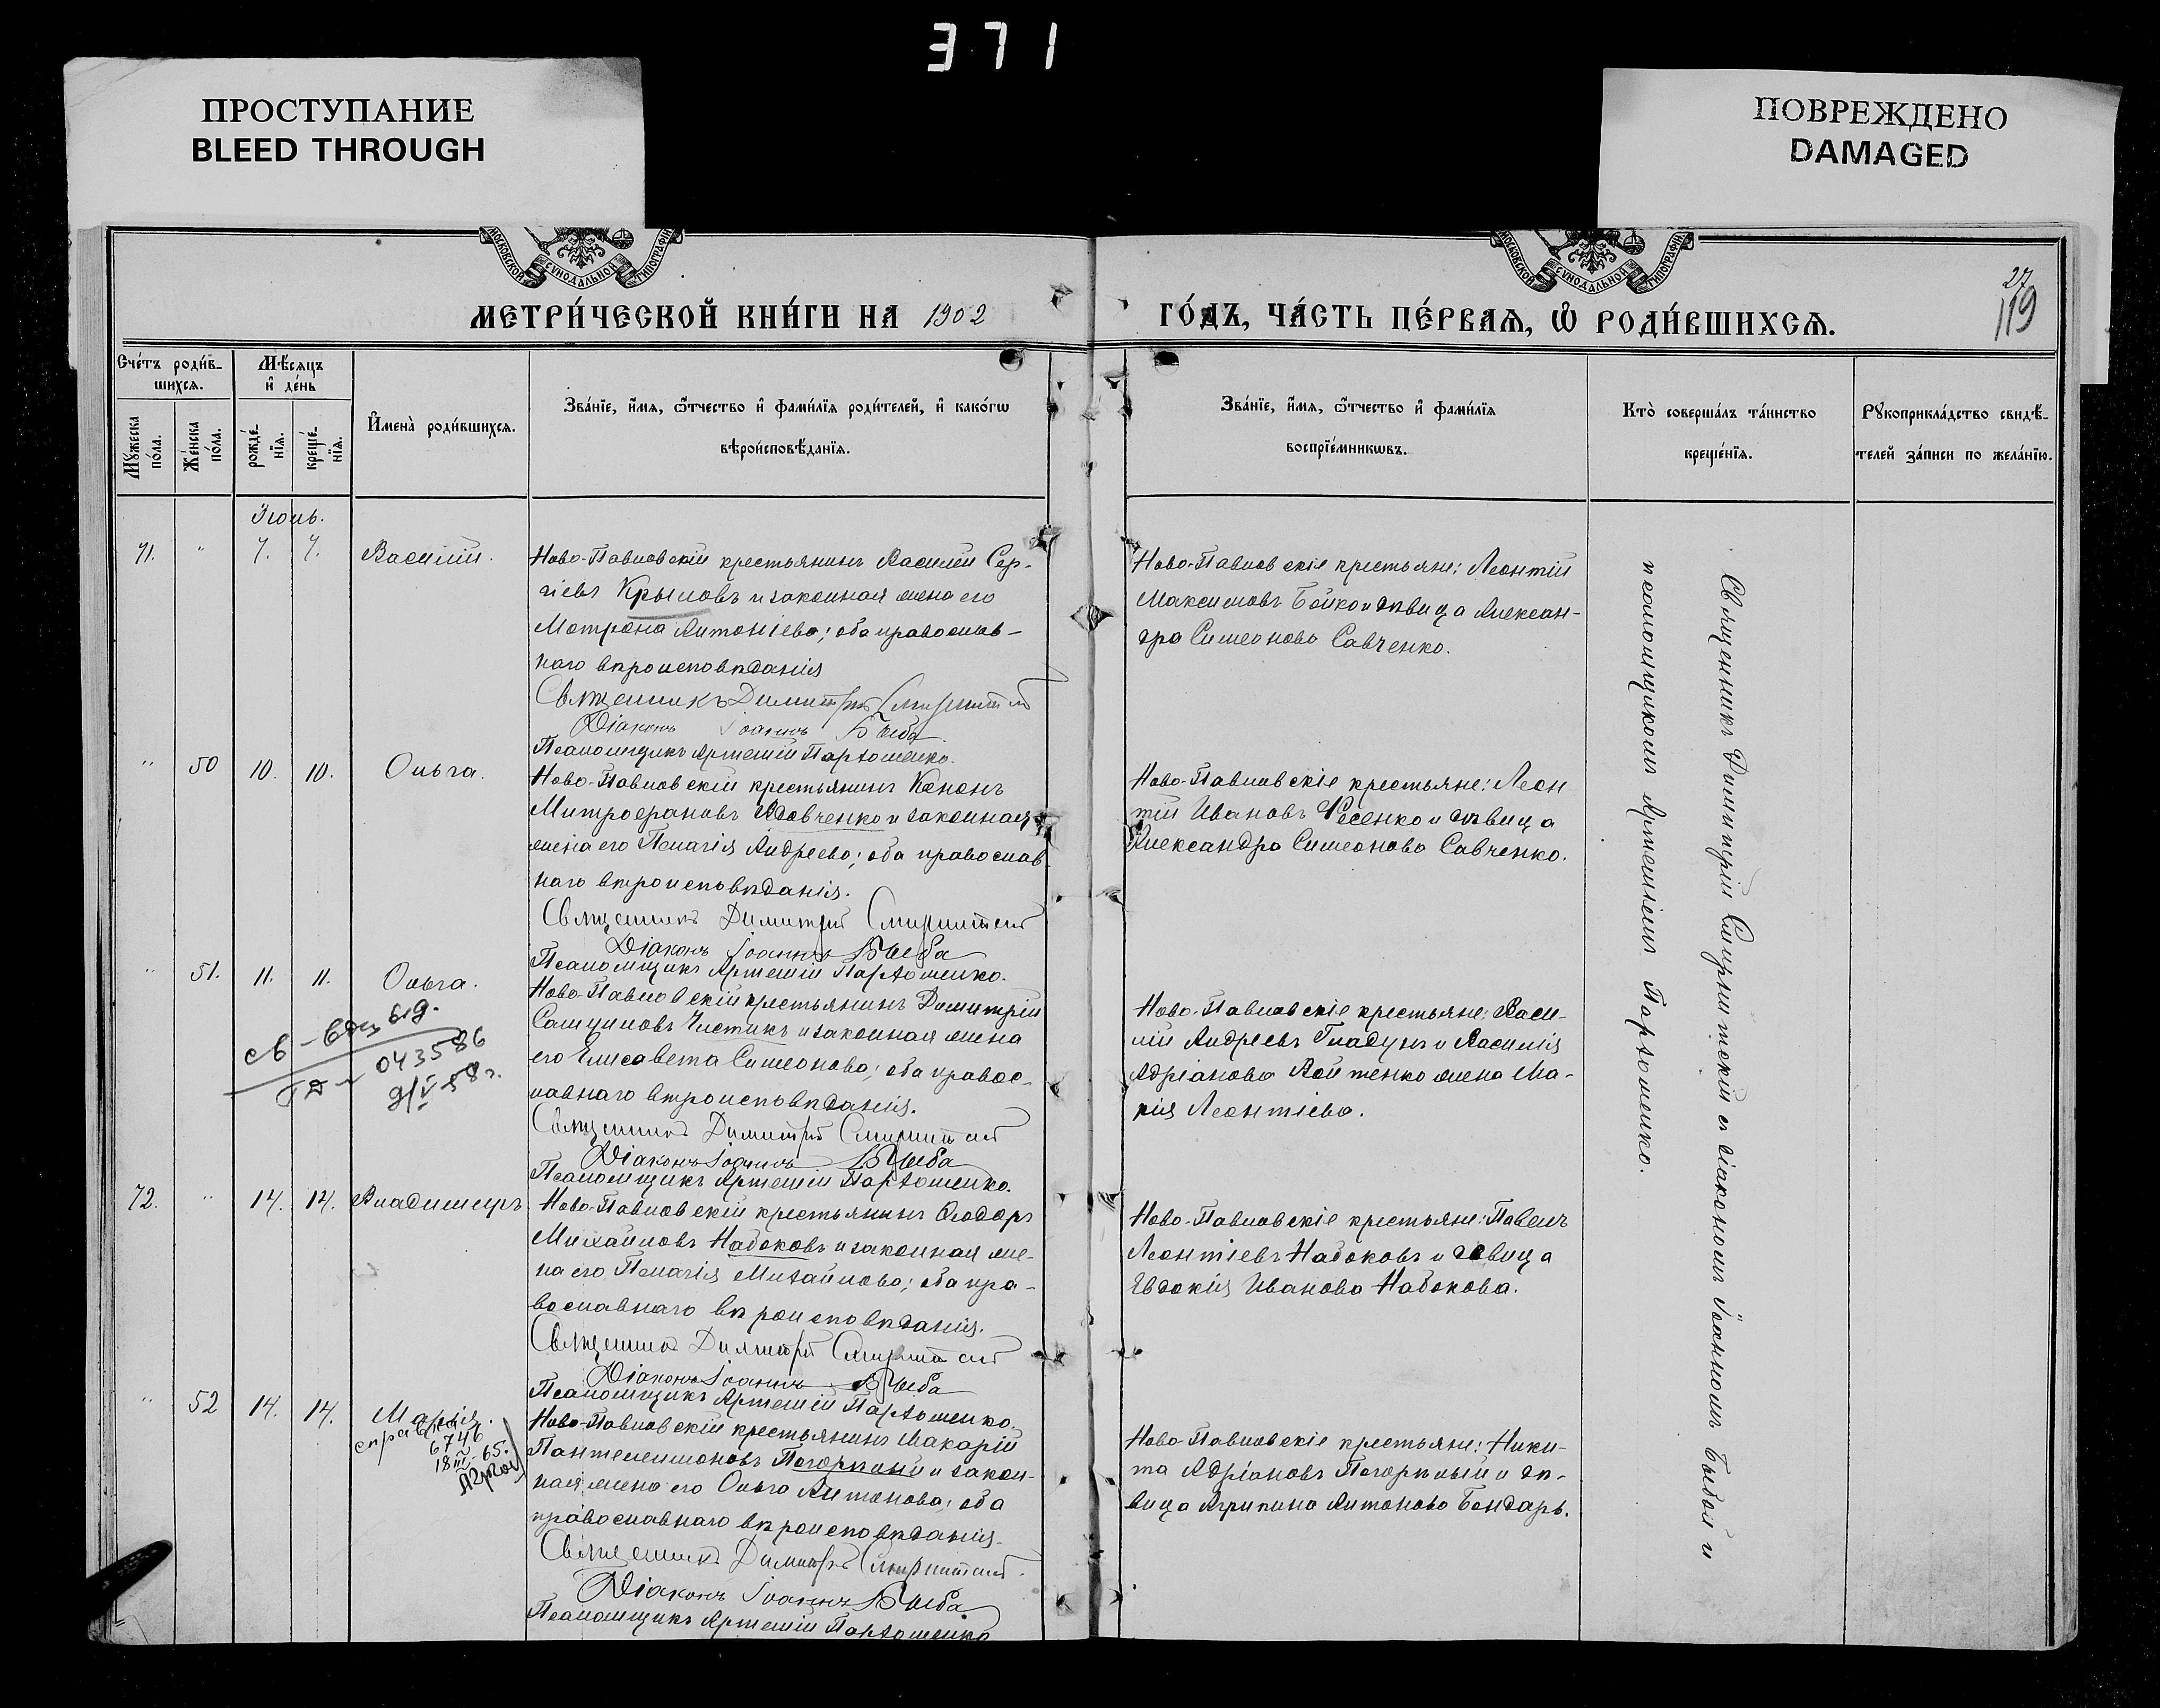 371
ПРОСТУПАНИЕ
BLEED THROUGH
ПОВРЕЖДЕНО
DAMAGED
МОСКОВСКОЙ СУНОДАЛЬНОЙ ТИПОГРАФІИ
МОСКОВСКОЙ СУНОДАЛЬНОЙ ТИПОГРАФІИ
27
119
МЕТРИ́ЧЕСКОЙ КНИ́ГИ НА 1902
ГО́ДЪ, ЧА́СТЬ ПЕ́РВАЯ, Ѡ҆ РОДИ́ВШИХСЯ.
Сче́тъ роди́в-
шихся.
Мѣ́сяцъ
и҆ де́нь
Мꙋжеска по́ла.
Же́нска по́ла.
рожде́-нїя.
креще́-нїя.
И҆мена̀ роди́вшихся.
Зва́нїе, и҆́мя, ѻ҆́тчество и҆ фами́лїя роди́телей, и҆ како́гѡ
вѣроисповѣ́данїя.
Зва́нїе, и҆́мя, ѻ҆́тчество и҆ фами́лїя
воспрїе́мникѡвъ.
Кто̀ соверша́лъ та́инство
креще́нїя.
Рꙋкоприкла́дство свидѣ́-
телей за́писи по жела́нїю.
Іюнь.
71. " 7. 7. Василій.
Ново-Павловскій крестьянинъ Василій Сер-
гіевъ Крыловъ и законная жена его
Матрона Антоніева; оба православ-
наго вѣроисповѣданія
Священникъ Димитрій Смирнитскій
Діаконъ Іоаннъ Быба
Псаломщикъ Артемій Пархоменко.
Ново-Павловскіе крестьяне: Леонтій
Максимовъ Бойко и дѣвица Алексан-
дра Симеонова Савченко.
" 50 10. 10. Ольга.
Ново-Павловскій крестьянинъ Кононъ
Митрофановъ Вдовченко и законная
жена его Пелагія Андреева; оба православ
наго вѣроисповѣданія.
Священникъ Димитрій Смирнитскій
Діаконъ Іоаннъ Быба
Псаломщикъ Артемій Пархоменко.
Ново-Павловскіе крестьяне: Леон
тій Ивановъ Фесенко и дѣвица
Александра Симеонова Савченко.
" 51. 11. 11. Ольга.
Ново-Павловскій крестьянинъ Димитрій
Чистикъ и законная жена
его Елисавета Симеонова; оба правос-
лавнаго вѣроисповѣданія.
Священникъ Димитрій Смирнитскій
Діаконъ Іоаннъ Быба
Псаломщикъ Артемій Пархоменко.
св-во выд.
043586
9/V-58г.
Ново-Павловскіе крестьяне: Васи-
лій Андреевъ Гладунъ и Василія
Адріанова Войтенко жена Ма-
рія Леонтіева.
72. " 14. 14. Владимиръ
Ново-Павловскій крестьянинъ Ѳеодоръ
Михайловъ Набоковъ и законная же-
на его Пелагія Михайлова; оба пра-
вославнаго вѣроисповѣданія.
Священникъ Димитрій Смирнитскій
Діаконъ Іоаннъ Быба
Псаломщикъ Артемій Пархоменко.
Ново-Павловскіе крестьяне: Павелъ
Леонтіевъ Набоковъ и дѣвица
Евдокія Иванова Набокова.
" 52 14. 14. Марія.
6746
18 III-65.
Ново-Павловскій крестьянинъ Макарій
Пантелеимоновъ Погорѣлый и закон-
ная жена его Ольга Антонова; оба
православнаго вѣроисповѣданія.
Священникъ Димитрій Смирнитскій
Діаконъ Іоаннъ Быба
Псаломщикъ Артемій Пархоменко
Ново-Павловскіе крестьяне: Ники-
та Адріановъ Погорѣлый и дѣ-
вица Агрипина Антонова Бондарь.
Священникъ Димитрій Смирнитскій съ діакономъ Іоанномъ Быбой и
псаломщикомъ Артеміемъ Пархоменко.